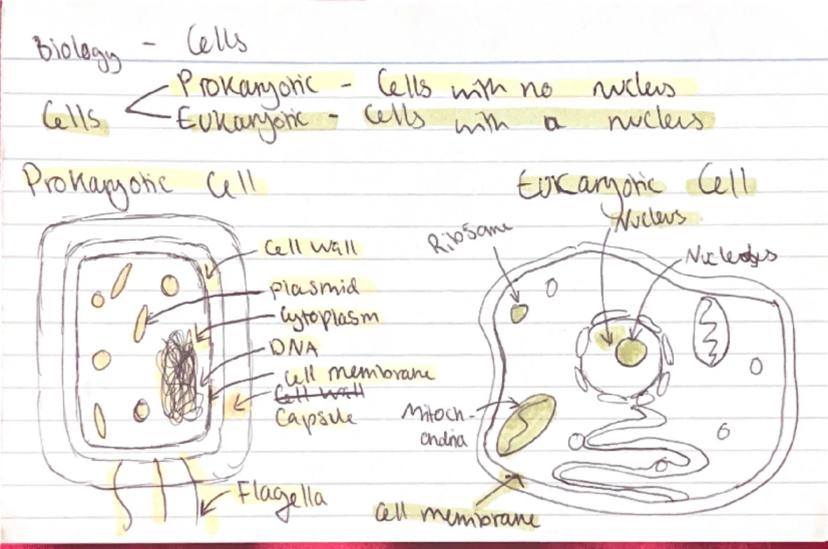 Biology - Cells
Prokaryotic - Cells with no nucleus
Cells
Eukaryotic - Cells with a nucleus
Prokaryotic Cell
Eukaryotic Cell
Cell Wall
plasmid
Cytoplasm
DNA
Cell membrane
Cell Wall
Capsule
Flagella
Ribsome
Nucleus
Mitoch-
ondria
Cell membrane